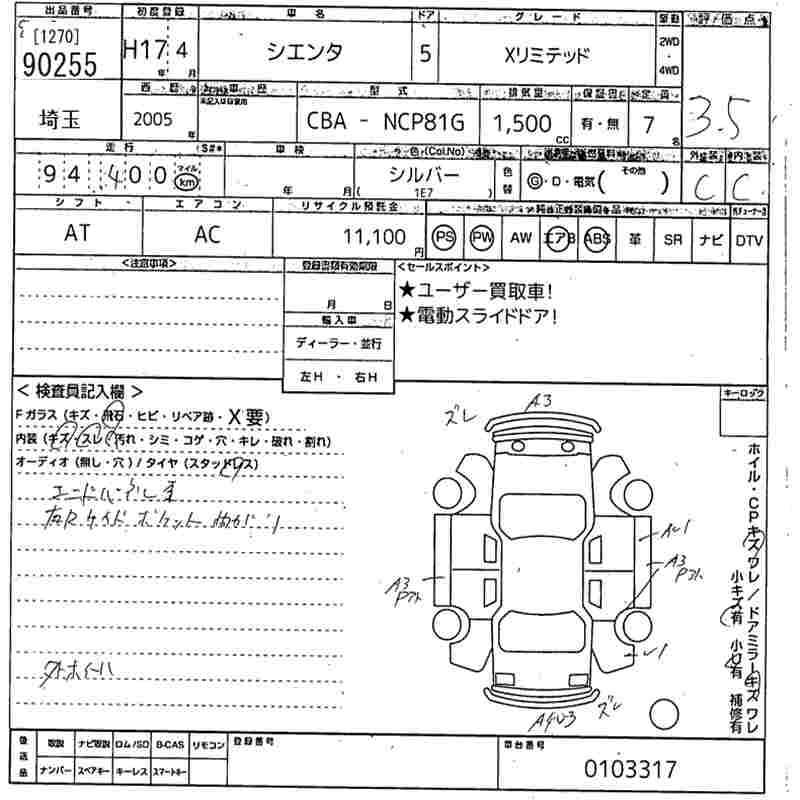 出品番号 初度登録 車名 ドア グレード 駆動 評価点
[1270]
90255 H17 4 シエンタ 5 Xリミテッド 2WD・4WD 3.5
年 月
西暦 車歴 型式 排気量 保証書 定員
未記入は自家用
埼玉 2005年 CBA - NCP81G 1,500cc 有・無 7名
走行 S#* 車検 カラー色(Col.No) 外装 内装
94 400 マイル km 年 月 シルバー (1E7) 色替 G・D・電気(その他) C C
シフト エアコン リサイクル預託金
AT AC 11,100円 PS PW AW エアB ABS 革 SR ナビ DTV
<注意事項> 登録書類有効期限 <セールスポイント>
月 日 ★ユーザー買取車!
★電動スライドドア!
輸入車
ディーラー・並行
左H・右H
<検査員記入欄> キーロック
Fガラス(キズ・飛石・ヒビ・リペア跡・X要)
内装(キズ・スレ・汚れ・シミ・コゲ・穴・キレ・破れ・割れ)
オーディオ(無し・穴)/タイヤ(スタッドレス)
ズレ A3
AU1
A3
A3
U1
外ホイール
AU3 ズレ
ホイル・CPキズワレ/ドアミラーキズワレ
小キズ有 小凹有 補修有
後送品 取説 ナビ取説 ロム/SD B-CAS リモコン 登録番号 車台番号
ナンバー スペアキー キーレス スマートキー 0103317